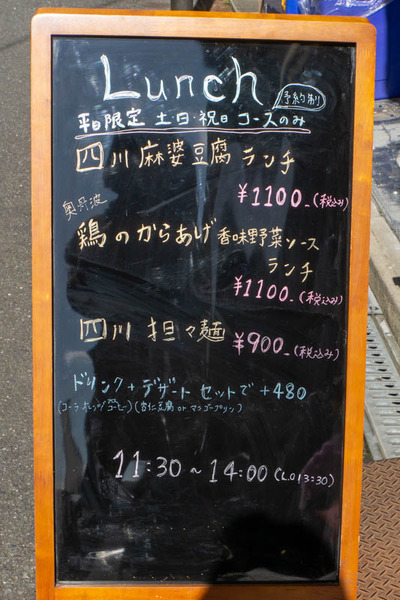 Lunch 予約制
平日限定 土日・祝日 コースのみ
四川麻婆豆腐 ランチ
¥1100-(税込み)
奥丹波
鶏のからあげ 香味野菜ソース
ランチ
¥1100-(税込み)
四川 担々麺 ¥900-(税込み)
ドリンク+デザート セットで +480
(杏仁豆腐 or マンゴープリン)
11:30~14:00 (L.O 13:30)